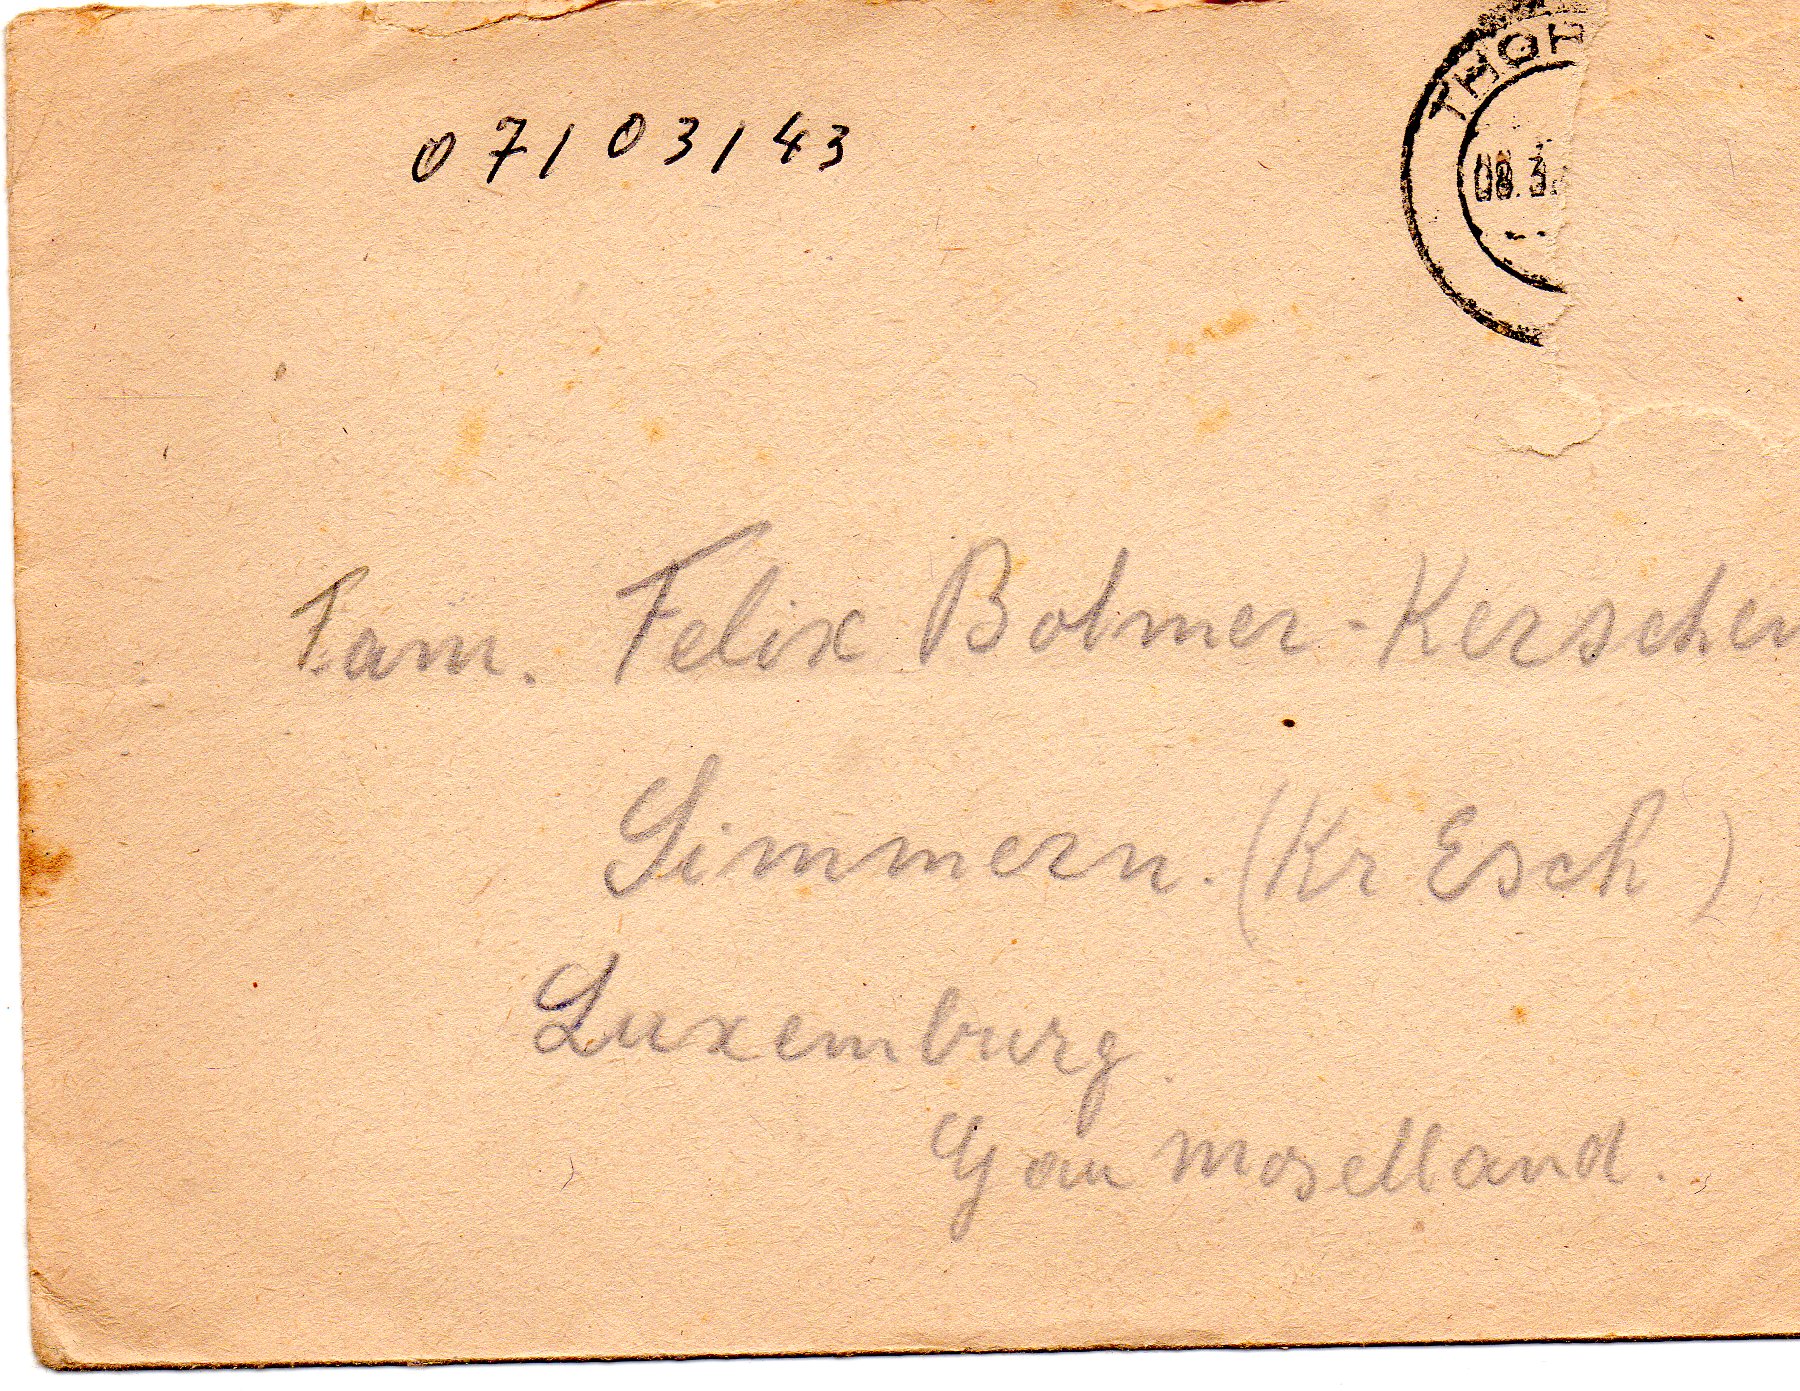 07/03/43
THOR
08.3.
Fam. Felix Bolmer-Kerschen
Simmern. (Kr Esch)
Luxemburg.
Gau Moselland.